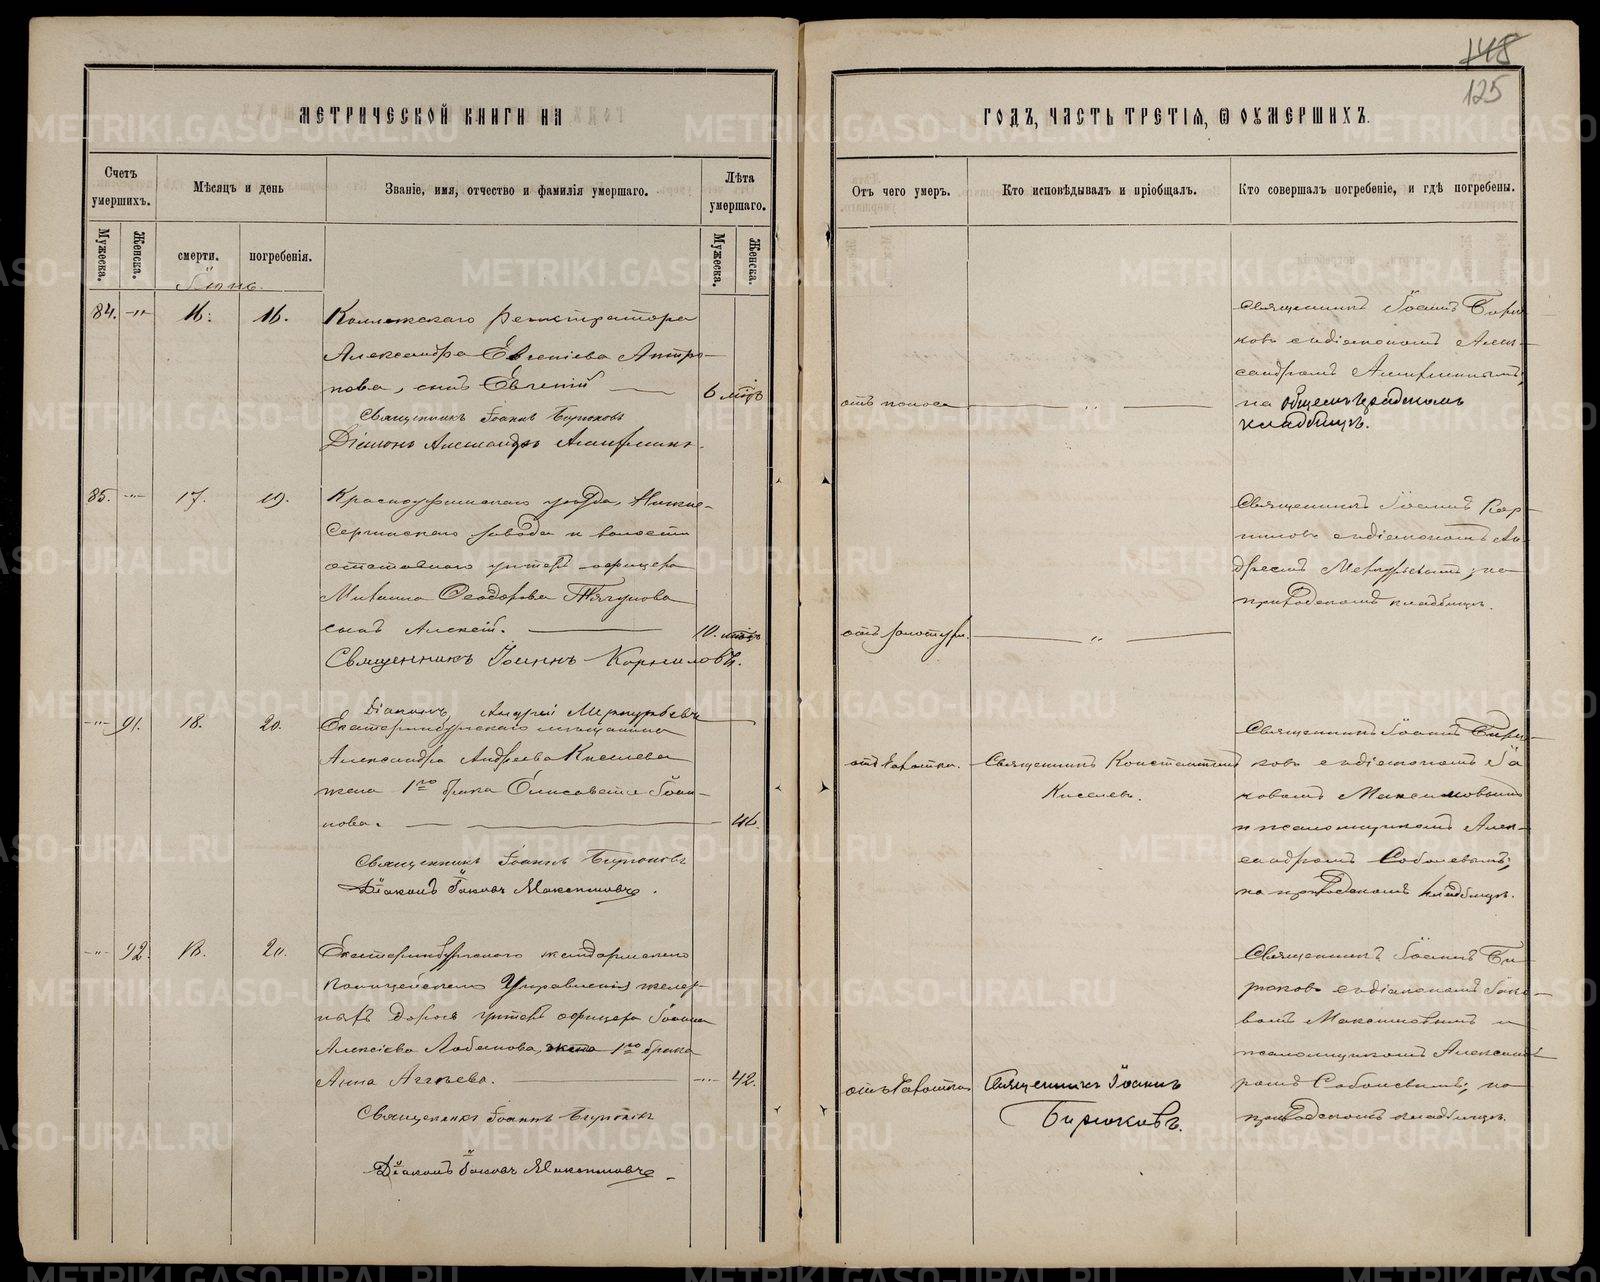 148
125
МЕТРИЧЕСКОЙ КНИГИ НА
ГОДЪ, ЧАСТЬ ТРЕТІЯ, Ѿ ОУМЕРШИХЪ.
Счетъ умершихъ.
Мѣсяцъ и день
Званіе, имя, отчество и фамилія умершаго.
Лѣта умершаго.
Отъ чего умеръ.
Кто исповѣдывалъ и пріобщалъ.
Кто совершалъ погребеніе, и гдѣ погребены.
Мужеска.
Женска.
смерти.
погребенія.
Мужеска.
Женска.
Іюнь.
84. -"- 16. 16.
Коллежскаго Регистратора
Александра Евгеніева Антро-
пова, сынъ Евгеній
6 лѣтъ
отъ поноса
"
Священникъ Іоаннъ Бирю-
ковъ съ діакономъ Алек-
сандромъ
на общемъ градскомъ
кладбищѣ.
Священникъ Іоаннъ Бирюковъ
Діаконъ Александръ
85. -"- 17. 19.
Красноуфимскаго уѣзда, Нижне-
Сергинскаго завода и волости
отставного унтеръ-офицера
Михаила Ѳеодорова Тягунова
сынъ Алексій.
10. лѣтъ
отъ золотухи.
"
Священникъ Іоаннъ Кор-
ниловъ съ діакономъ Ан-
дреемъ Меркурьевымъ; на
приходскомъ кладбищѣ.
Священникъ Іоаннъ Корниловъ.
Діаконъ Андрей Меркурьевъ
-"- 91. 18. 20.
Екатеринбургскаго мѣщанина
Александра Андреева Киселева
жена 1го брака Елисавета Іоан-
нова.
46.
отъ чахотки.
Священникъ Константинъ
Киселевъ.
Священникъ Іоаннъ Бирю-
ковъ съ діакономъ Іа-
ковомъ Максимовымъ
и псаломщикомъ Алек-
сандромъ Соболевымъ;
на приходскомъ кладбищѣ.
Священникъ Іоаннъ Бирюковъ
Діаконъ Іаковъ Максимовъ.
-"- 92. 18. 20.
Екатеринбургскаго жандармскаго
полицейскаго Управленія желѣз-
ныхъ дорогъ унтеръ офицера Іоанна
Алексіева Лобанова, жена 1го брака
Анна Аггѣева.
-"- 42.
отъ чахотки
Священникъ Іоаннъ
Бирюковъ.
Священникъ Іоаннъ Би-
рюковъ съ діакономъ Іако-
вомъ Максимовымъ и
псаломщикомъ Александ-
ромъ Соболевымъ; на
приходскомъ кладбищѣ.
Священникъ Іоаннъ Бирюковъ
Діаконъ Іаковъ Максимовъ.
METRIKI.GASO-URAL.RU